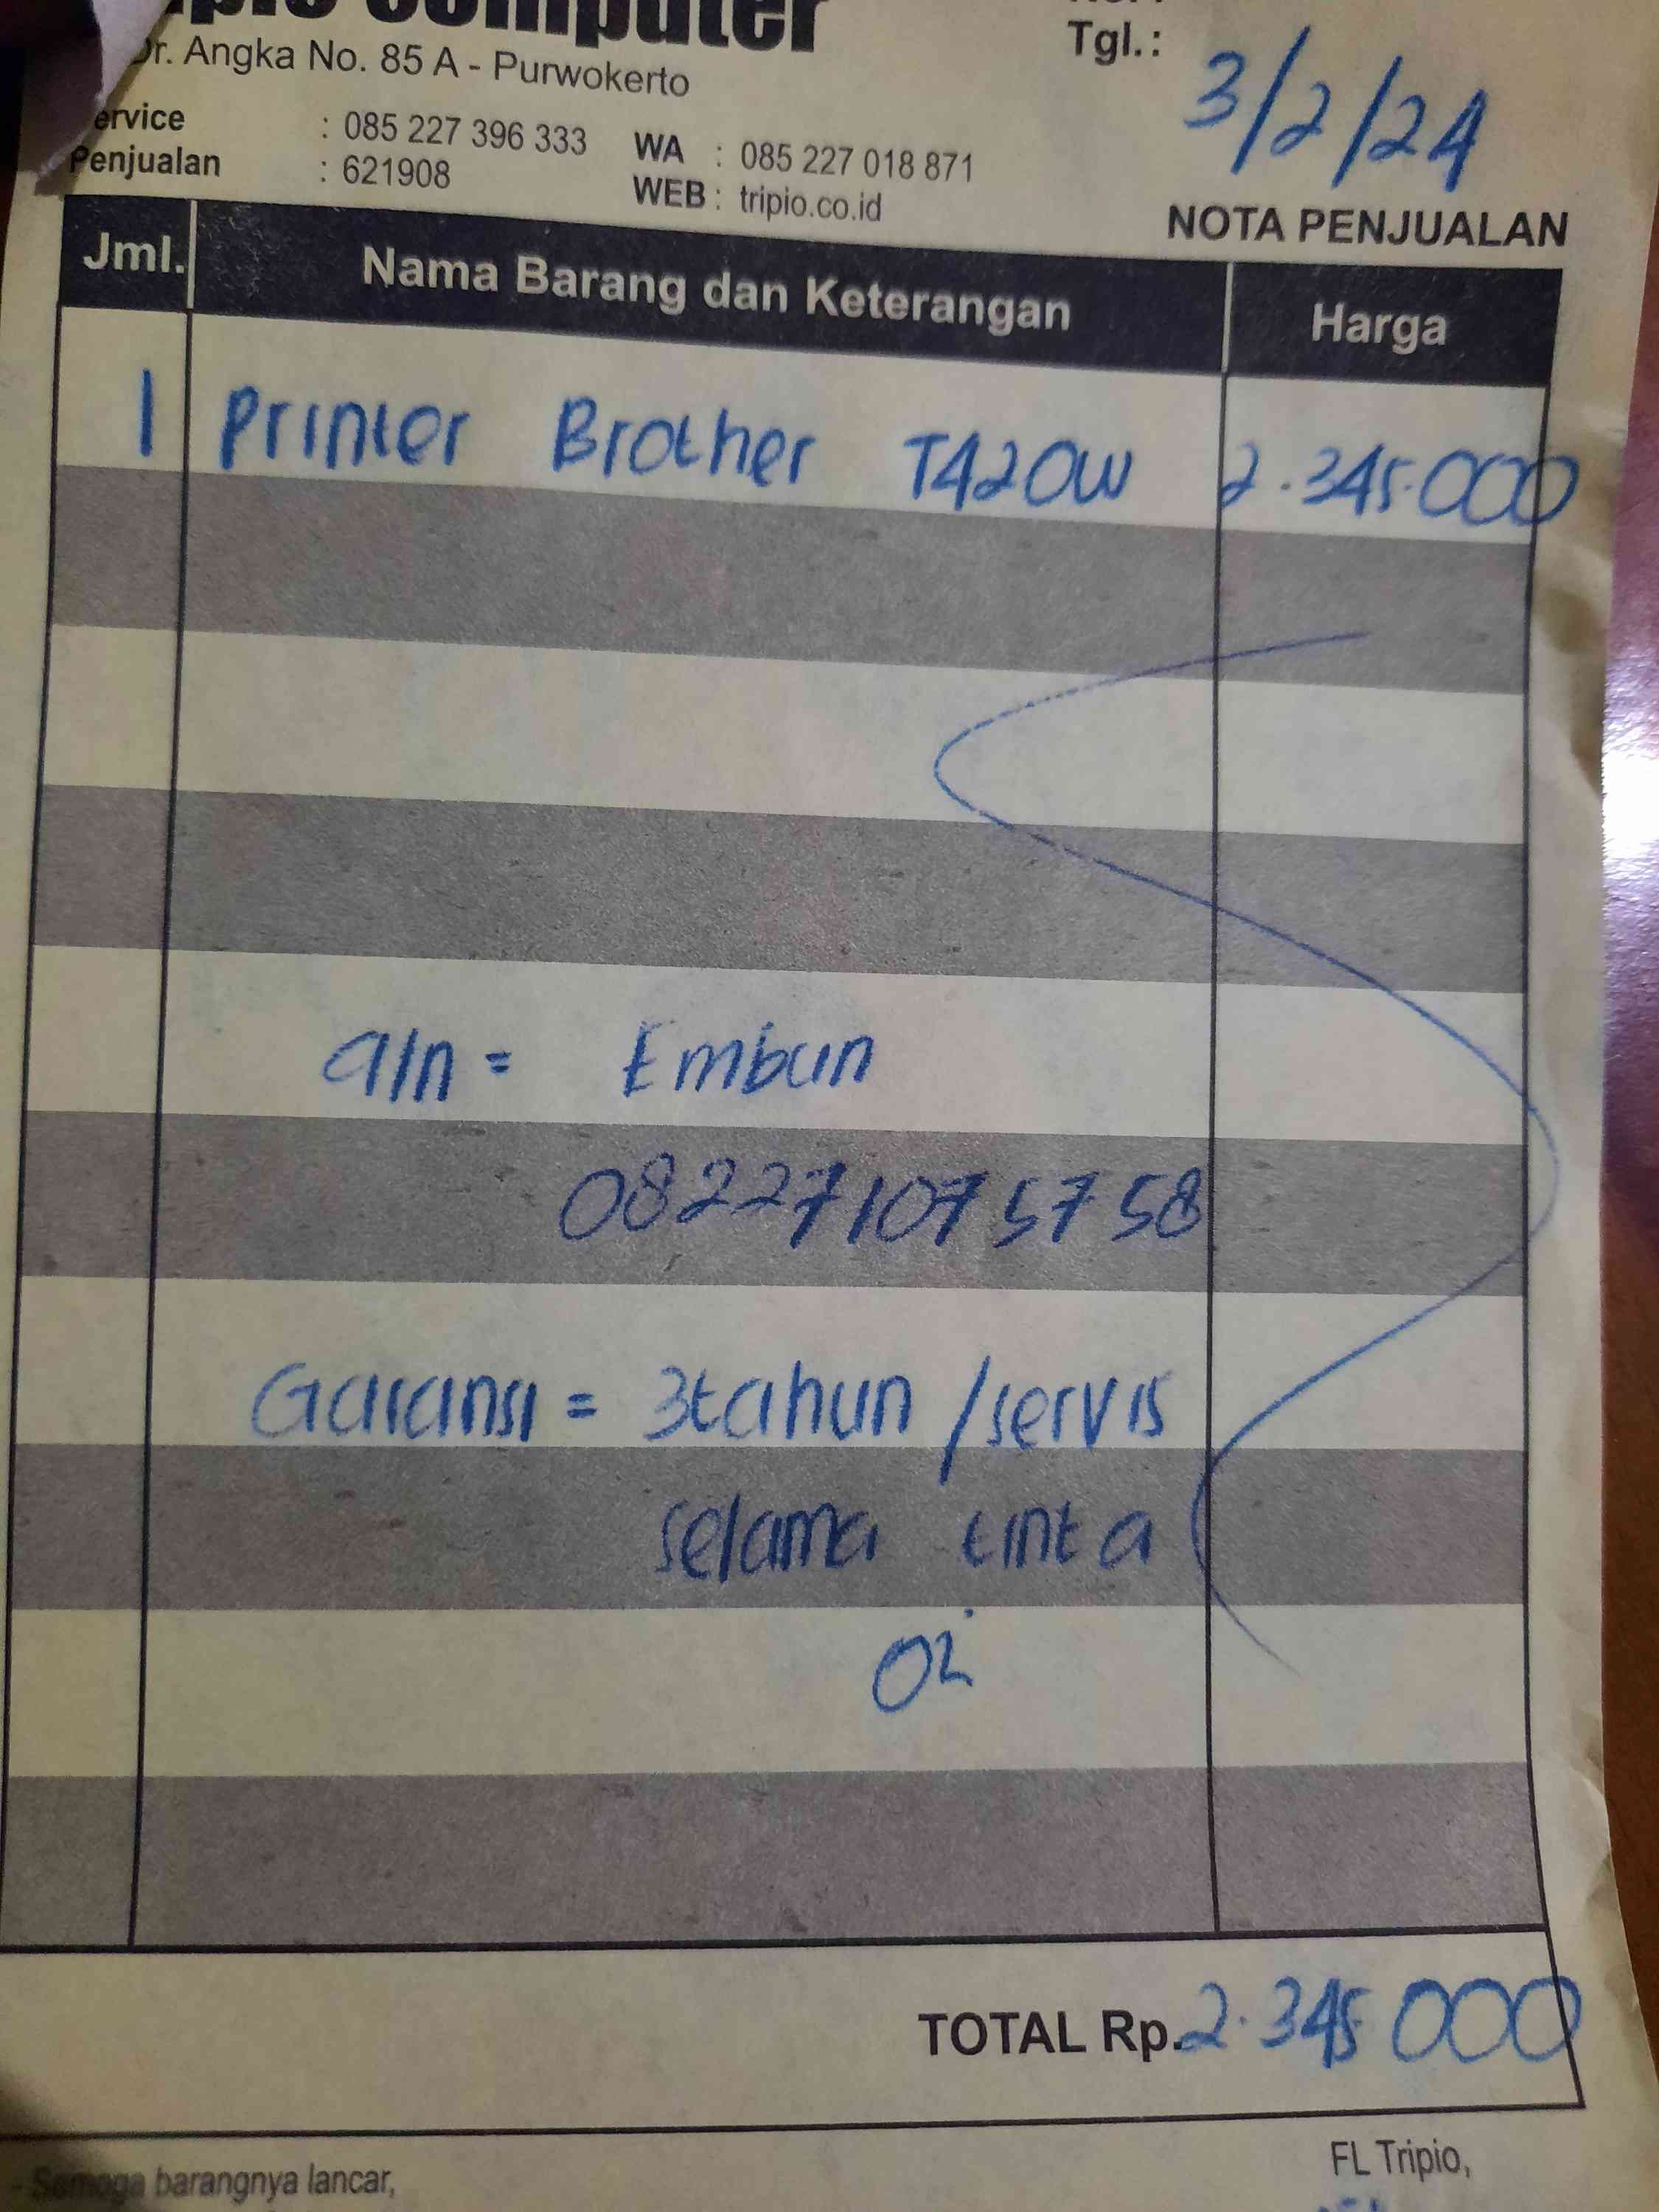 Computer
Dr. Angka No. 85 A - Purwokerto
Tgl.: 3/2/24
Service : 085 227 396 333 WA : 085 227 018 871
Penjualan : 621908 WEB : tripio.co.id
NOTA PENJUALAN
Jml. Nama Barang dan Keterangan Harga
1 Printer Brother T420W 2.345.000
a/n = Embun
082271075758
Garansi = 3tahun /servis
selama tinta
ori
TOTAL Rp. 2.345.000
FL Tripio,
- Semoga barangnya lancar,